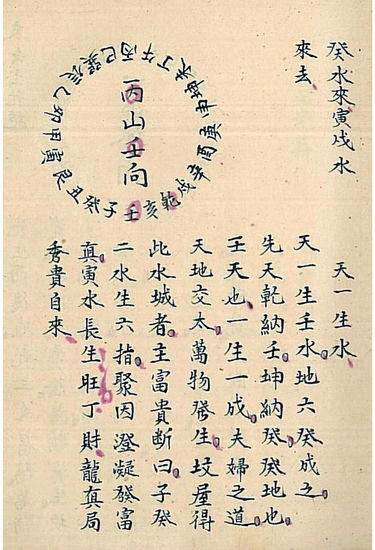 癸水來寅戌水
來去
丙山壬向
壬子癸丑艮寅甲卯乙辰巽巳丙午丁未坤申庚酉辛戌乾亥
天一生水
天一生壬水地六癸成之
先天乾納壬坤納癸癸地也
壬天也一生一成夫婦之道
天地交太萬物發生坟屋得
此水城者主富貴断曰子癸
二水生六指聚因澄凝發富
真寅水長生旺丁財龍真局
秀貴自來